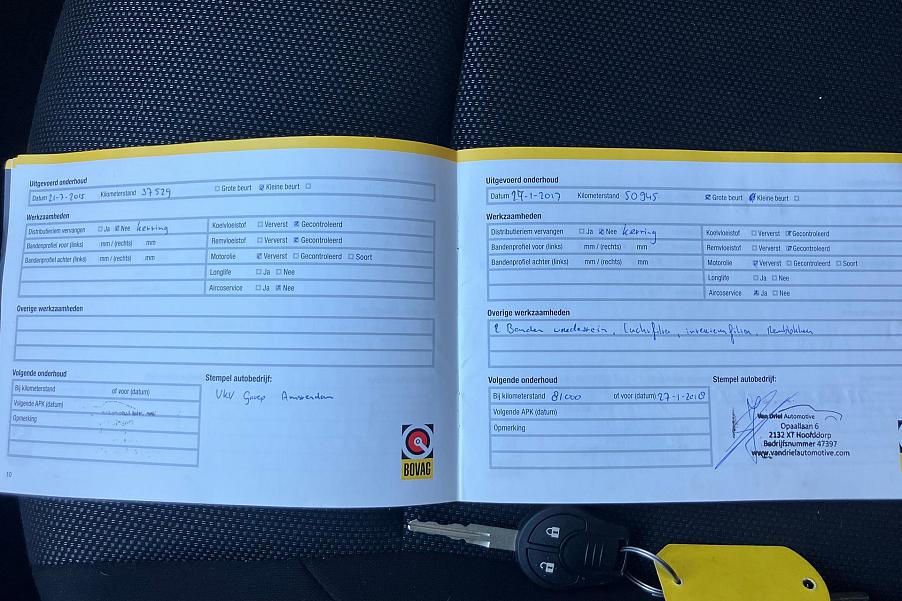 Uitgevoerd onderhoud
Datum 21-7-2015 Kilometerstand 37529 Grote beurt Kleine beurt
Werkzaamheden
Distributieriem vervangen Ja Nee ketting
Bandenprofiel voor (links) mm / (rechts) mm
Bandenprofiel achter (links) mm / (rechts) mm
Koelvloeistof Ververst Gecontroleerd
Remvloeistof Ververst Gecontroleerd
Motorolie Ververst Gecontroleerd Soort
Longlife Ja Nee
Aircoservice Ja Nee
Overige werkzaamheden
Volgende onderhoud
Bij kilometerstand of voor (datum)
Volgende APK (datum)
Opmerking
Stempel autobedrijf:
VKV Groep Amsterdam
BOVAG
10
Uitgevoerd onderhoud
Datum 27-1-2017 Kilometerstand 50945 Grote beurt Kleine beurt
Werkzaamheden
Distributieriem vervangen Ja Nee ketting
Bandenprofiel voor (links) mm / (rechts) mm
Bandenprofiel achter (links) mm / (rechts) mm
Koelvloeistof Ververst Gecontroleerd
Remvloeistof Ververst Gecontroleerd
Motorolie Ververst Gecontroleerd Soort
Longlife Ja Nee
Aircoservice Ja Nee
Overige werkzaamheden
2 Banden vredestein, luchtfilter, interieurfilter, Remblokken
Volgende onderhoud
Bij kilometerstand 81000 of voor (datum) 27-1-2018
Volgende APK (datum)
Opmerking
Stempel autobedrijf:
Van Driel Automotive
Opaallaan 6
2132 XT Hoofddorp
Bedrijfsnummer 47397
www.vandrielautomotive.com